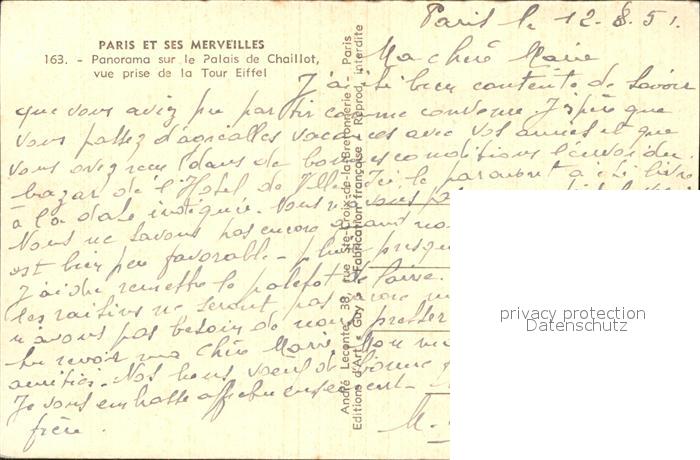 PARIS ET SES MERVEILLES
163. - Panorama sur le Palais de Chaillot,
vue prise de la Tour Eiffel
André Leconte, 38, rue Ste-Croix-de-la-Bretonnerie - Paris
Editions d'Art - Guy - Fabrication française - Reprod. interdite
Paris le 12-8.51.
Ma chère Marie
J'ai été bien contente de savoir
que vous aviez pu partir comme convenu. J'espère que
vous passez d'agréables vacances avec vos amies et que
vous avez reçu dans de bonnes conditions l'envoi du
bazar de l'Hotel de Ville le paravent a été livré
à la date indiquée. Nous
Nous ne savons pas encore quand
est bien peu favorable - pluie presque
J'ai du remettre le paletot de laine.
les raisins ne seront pas
n'avons pas besoin de nous presser
Au revoir ma Chère Marie. Mon
amitiés. Nos bons voeux de bonne
Je vous embrasse affectueusement.
M.
privacy protection
Datenschutz